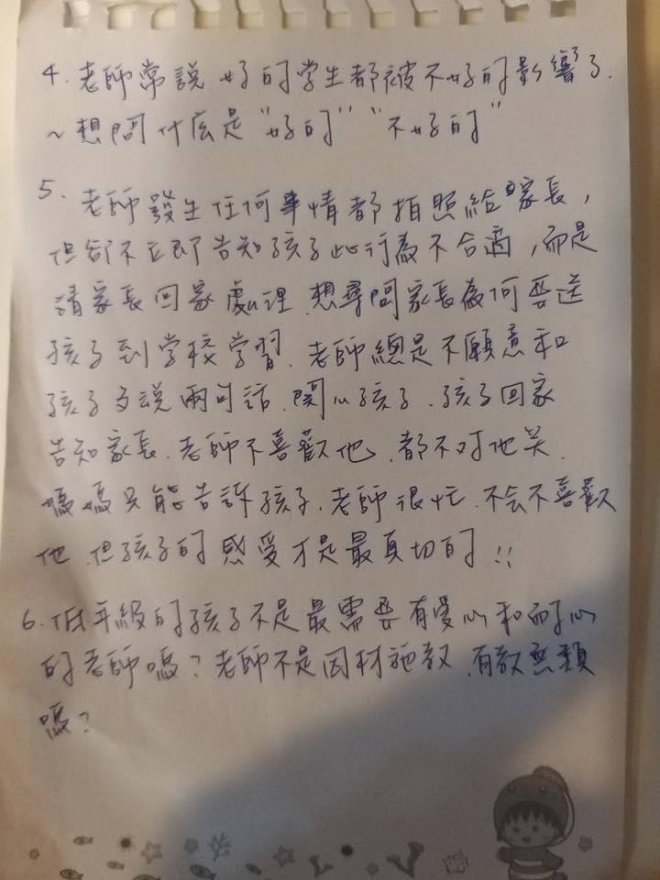 4. 老師常說好的学生都被不好的影響了.
~ 想問什広是"好的" "不好的"
5. 老師發生任何事情都拍照給家長,
但卻不立即告知孩子此行為不合適,而是
請家長回家處理.想尋問家長為何要送
孩子到学校学習.老師總是不願意和
孩子多說兩句話.関心孩子.孩子回家
告知家長.老師不喜歡他.都不对他笑.
媽媽只能告訴孩子.老師很忙.不会不喜歡
他.但孩子的感受才是最真切的!!
6. 低年級的孩子不是最需要有愛心和耐心
的老師嗎?老師不是因材施教.有教無類
嗎?